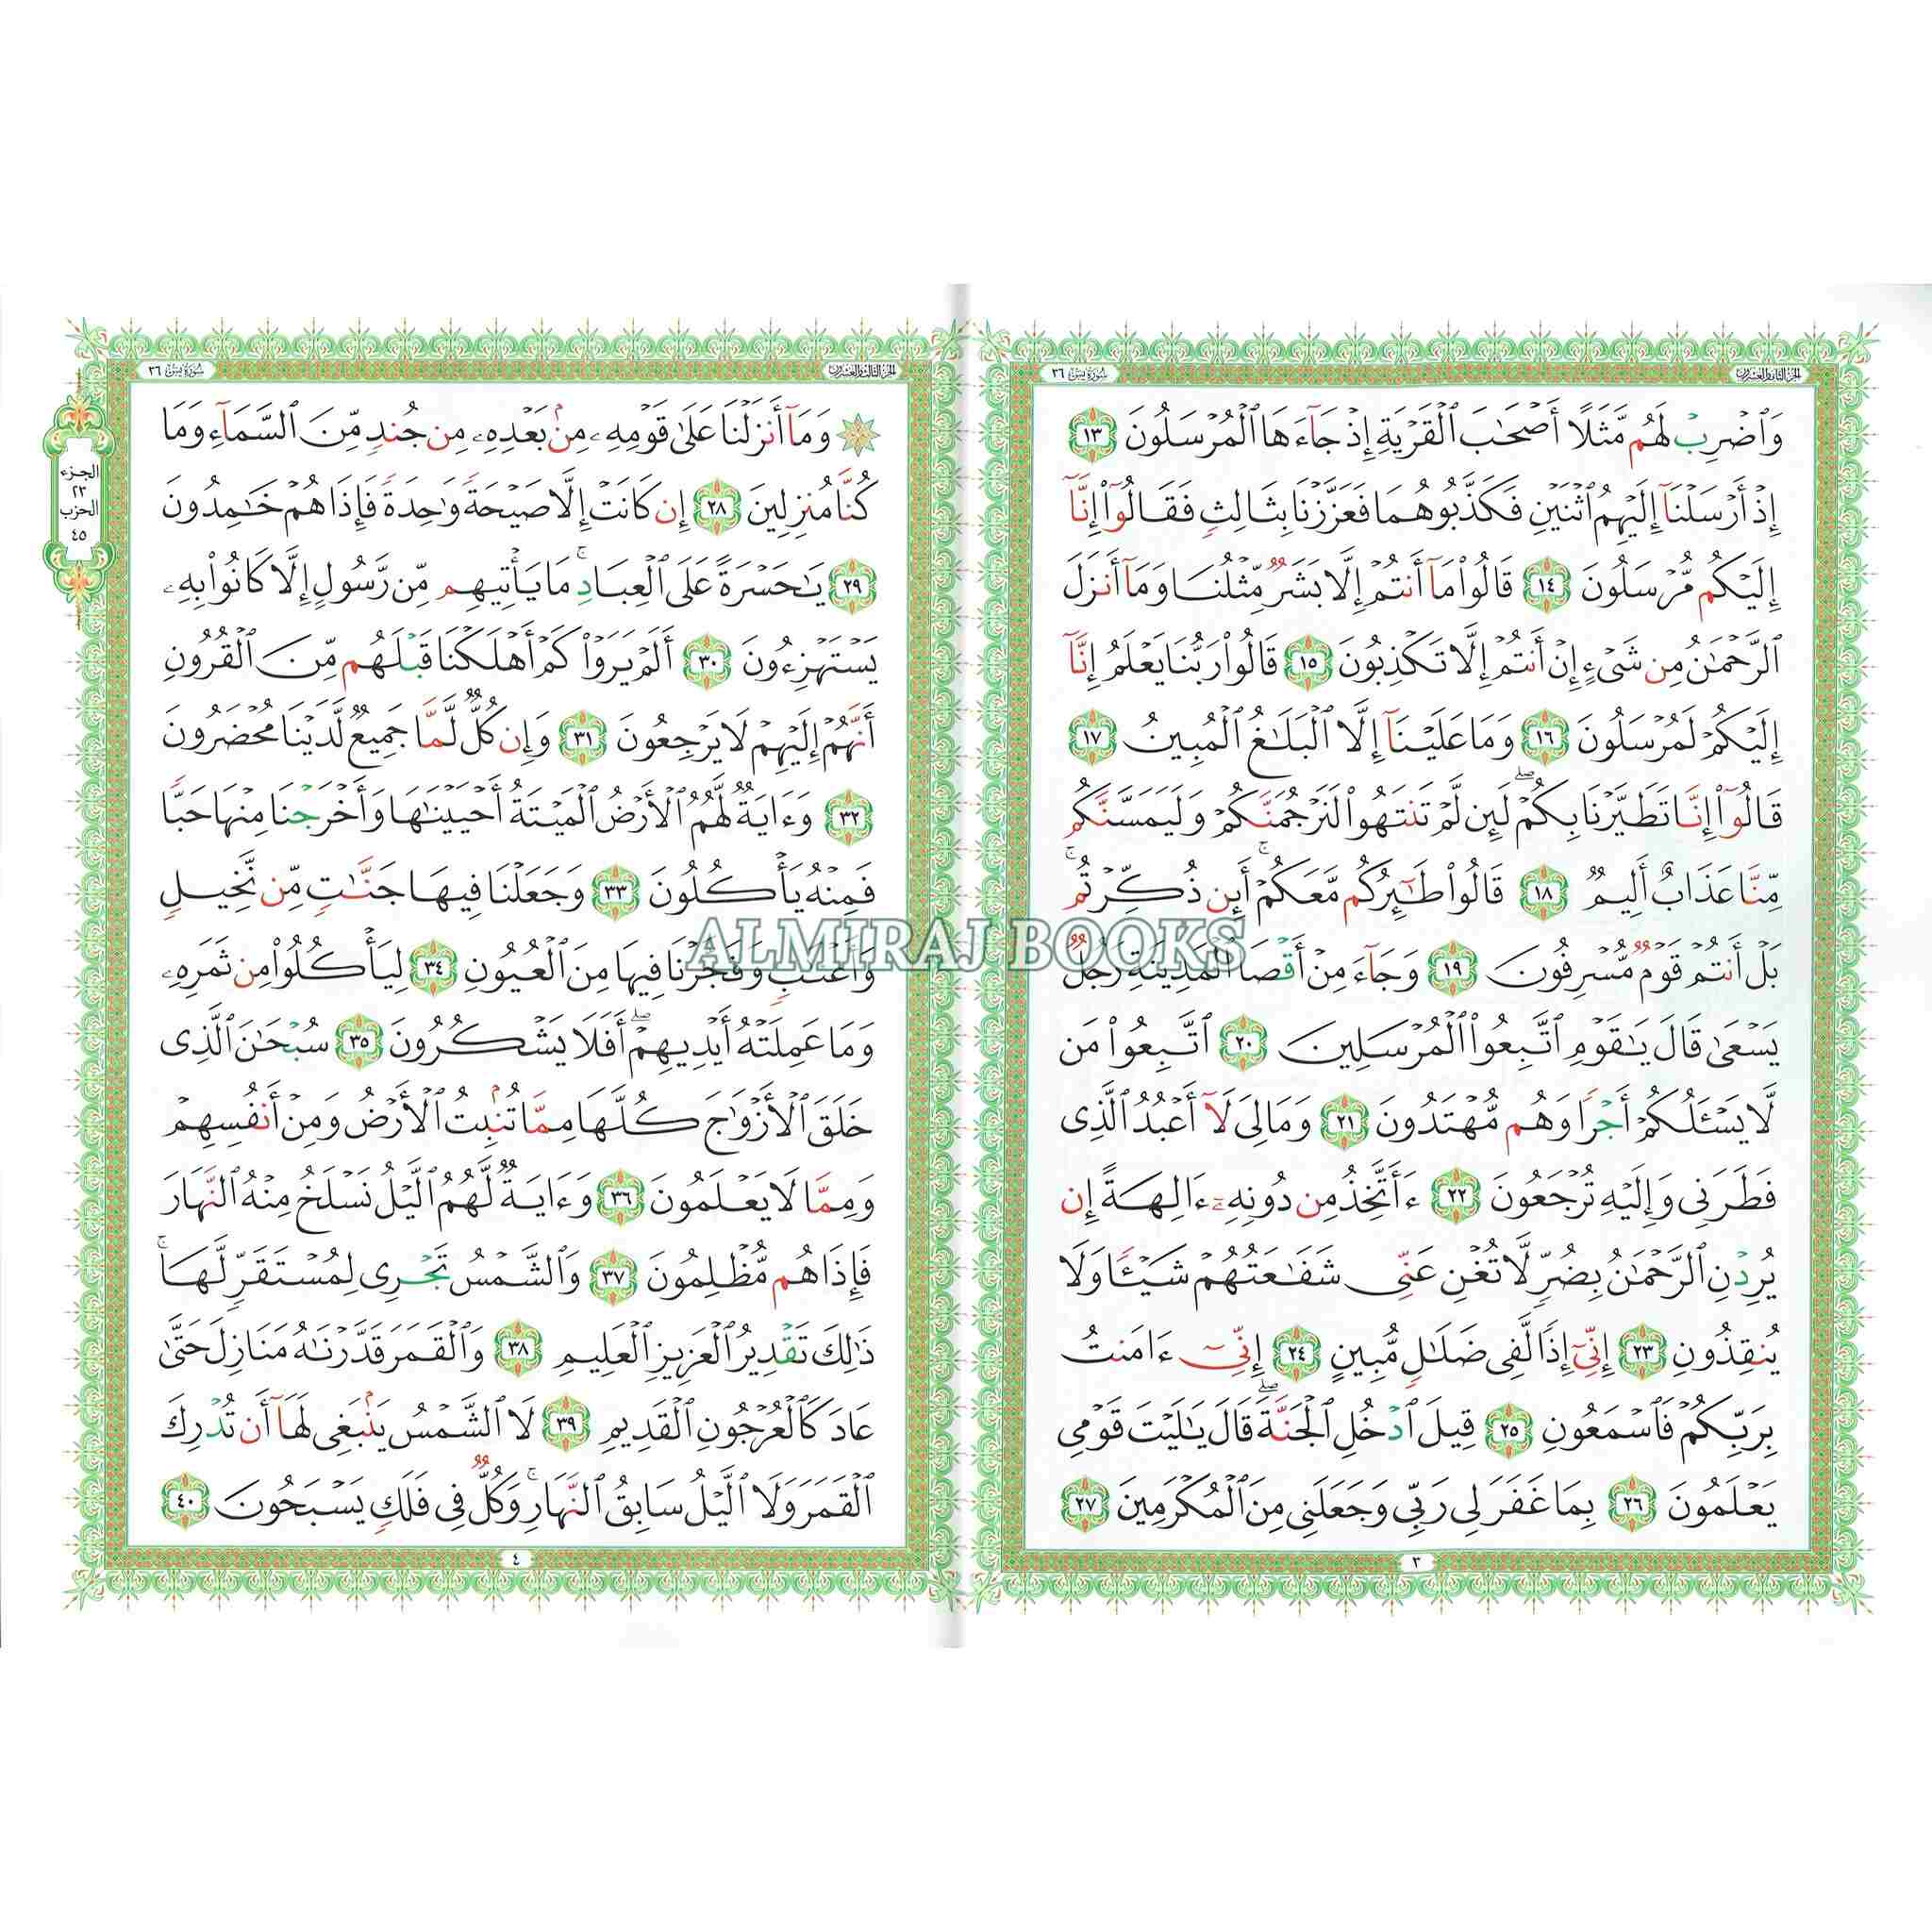 الجزء الثاني والعشرون
سورة يس ٣٦
وَٱضۡرِبۡ لَهُم مَّثَلًا أَصۡحَٰبَ ٱلۡقَرۡيَةِ إِذۡ جَآءَهَا ٱلۡمُرۡسَلُونَ ١٣
إِذۡ أَرۡسَلۡنَآ إِلَيۡهِمُ ٱثۡنَيۡنِ فَكَذَّبُوهُمَا فَعَزَّزۡنَا بِثَالِثٖ فَقَالُوٓاْ إِنَّآ
إِلَيۡكُم مُّرۡسَلُونَ ١٤ قَالُواْ مَآ أَنتُمۡ إِلَّا بَشَرٞ مِّثۡلُنَا وَمَآ أَنزَلَ
ٱلرَّحۡمَٰنُ مِن شَيۡءٍ إِنۡ أَنتُمۡ إِلَّا تَكۡذِبُونَ ١٥ قَالُواْ رَبُّنَا يَعۡلَمُ إِنَّآ
إِلَيۡكُمۡ لَمُرۡسَلُونَ ١٦ وَمَا عَلَيۡنَآ إِلَّا ٱلۡبَلَٰغُ ٱلۡمُبِينُ ١٧
قَالُوٓاْ إِنَّا تَطَيَّرۡنَا بِكُمۡۖ لَئِن لَّمۡ تَنتَهُواْ لَنَرۡجُمَنَّكُمۡ وَلَيَمَسَّنَّكُم
مِّنَّا عَذَابٌ أَلِيمٞ ١٨ قَالُواْ طَٰٓئِرُكُم مَّعَكُمۡۚ أَئِن ذُكِّرۡتُمۚ
بَلۡ أَنتُمۡ قَوۡمٞ مُّسۡرِفُونَ ١٩ وَجَآءَ مِنۡ أَقۡصَا ٱلۡمَدِينَةِ رَجُلٞ
يَسۡعَىٰ قَالَ يَٰقَوۡمِ ٱتَّبِعُواْ ٱلۡمُرۡسَلِينَ ٢٠ ٱتَّبِعُواْ مَن
لَّا يَسۡـَٔلُكُمۡ أَجۡرٗا وَهُم مُّهۡتَدُونَ ٢١ وَمَالِيَ لَآ أَعۡبُدُ ٱلَّذِي
فَطَرَنِي وَإِلَيۡهِ تُرۡجَعُونَ ٢٢ ءَأَتَّخِذُ مِن دُونِهِۦٓ ءَالِهَةً إِن
يُرِدۡنِ ٱلرَّحۡمَٰنُ بِضُرّٖ لَّا تُغۡنِ عَنِّي شَفَٰعَتُهُمۡ شَيۡـٔٗا وَلَا
يُنقِذُونِ ٢٣ إِنِّيٓ إِذٗا لَّفِي ضَلَٰلٖ مُّبِينٍ ٢٤ إِنِّيٓ ءَامَنتُ
بِرَبِّكُمۡ فَٱسۡمَعُونِ ٢٥ قِيلَ ٱدۡخُلِ ٱلۡجَنَّةَۖ قَالَ يَٰلَيۡتَ قَوۡمِي
يَعۡلَمُونَ ٢٦ بِمَا غَفَرَ لِي رَبِّي وَجَعَلَنِي مِنَ ٱلۡمُكۡرَمِينَ ٢٧
٣
الجزء الثالث والعشرون
سورة يس ٣٦
وَمَآ أَنزَلۡنَا عَلَىٰ قَوۡمِهِۦ مِنۢ بَعۡدِهِۦ مِن جُندٖ مِّنَ ٱلسَّمَآءِ وَمَا
كُنَّا مُنزِلِينَ ٢٨ إِن كَانَتۡ إِلَّا صَيۡحَةٗ وَٰحِدَةٗ فَإِذَا هُمۡ خَٰمِدُونَ
٢٩ يَٰحَسۡرَةً عَلَى ٱلۡعِبَادِۚ مَا يَأۡتِيهِم مِّن رَّسُولٍ إِلَّا كَانُواْ بِهِۦ
يَسۡتَهۡزِءُونَ ٣٠ أَلَمۡ يَرَوۡاْ كَمۡ أَهۡلَكۡنَا قَبۡلَهُم مِّنَ ٱلۡقُرُونِ
أَنَّهُمۡ إِلَيۡهِمۡ لَا يَرۡجِعُونَ ٣١ وَإِن كُلّٞ لَّمَّا جَمِيعٞ لَّدَيۡنَا مُحۡضَرُونَ
٣٢ وَءَايَةٞ لَّهُمُ ٱلۡأَرۡضُ ٱلۡمَيۡتَةُ أَحۡيَيۡنَٰهَا وَأَخۡرَجۡنَا مِنۡهَا حَبّٗا
فَمِنۡهُ يَأۡكُلُونَ ٣٣ وَجَعَلۡنَا فِيهَا جَنَّٰتٖ مِّن نَّخِيلٖ
وَأَعۡنَٰبٖ وَفَجَّرۡنَا فِيهَا مِنَ ٱلۡعُيُونِ ٣٤ لِيَأۡكُلُواْ مِن ثَمَرِهِۦ
وَمَا عَمِلَتۡهُ أَيۡدِيهِمۡۖ أَفَلَا يَشۡكُرُونَ ٣٥ سُبۡحَٰنَ ٱلَّذِي
خَلَقَ ٱلۡأَزۡوَٰجَ كُلَّهَا مِمَّا تُنۢبِتُ ٱلۡأَرۡضُ وَمِنۡ أَنفُسِهِمۡ
وَمِمَّا لَا يَعۡلَمُونَ ٣٦ وَءَايَةٞ لَّهُمُ ٱلَّيۡلُ نَسۡلَخُ مِنۡهُ ٱلنَّهَارَ
فَإِذَا هُم مُّظۡلِمُونَ ٣٧ وَٱلشَّمۡسُ تَجۡرِي لِمُسۡتَقَرّٖ لَّهَاۚ
ذَٰلِكَ تَقۡدِيرُ ٱلۡعَزِيزِ ٱلۡعَلِيمِ ٣٨ وَٱلۡقَمَرَ قَدَّرۡنَٰهُ مَنَازِلَ حَتَّىٰ
عَادَ كَٱلۡعُرۡجُونِ ٱلۡقَدِيمِ ٣٩ لَا ٱلشَّمۡسُ يَنۢبَغِي لَهَآ أَن تُدۡرِكَ
ٱلۡقَمَرَ وَلَا ٱلَّيۡلُ سَابِقُ ٱلنَّهَارِۚ وَكُلّٞ فِي فَلَكٖ يَسۡبَحُونَ ٤٠
٤
الجزء
٢٣
الحزب
٤٥
ALMIRAJ BOOKS